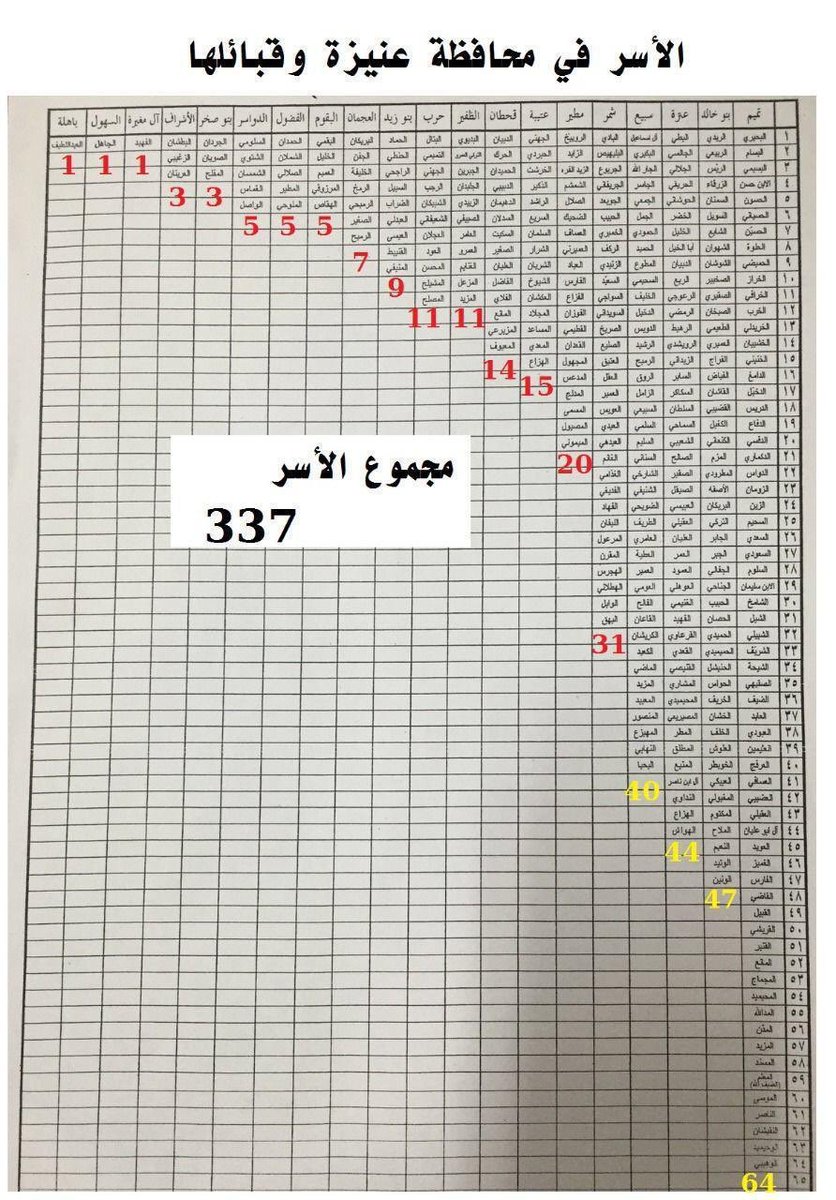 الأسر في محافظة عنيزة وقبائلها
تميم بنو خالد عنزة سبيع شمر مطير عتيبة قحطان الظفير حرب بنو زيد العجمان البقوم الفضول الدواسر بنو صخر الأشراف آل مغيرة السهول باهلة
١ البحيري الريدي البطي آل إسماعيل البادي الرويبخ الجهني الدبيان البديوي البتال الحماد البريكان البقمي الحمدان السلومي الجردان البطشان الفهيد الجاهل العبداللطيف
٢ البسام الربيعي الجالسي البكيري البليهيس الزايد الحبردي الحرك التميمي الحنطي الجفن الخليل الشملان الشتوي الصويان الزغيبي 1 1 1
٣ البسيمي الريّس الجلالي الجار الله الجربوع الزيد الفره الخرشت الحميدان الجبرين الجهني الراجحي الخليفة العميم الصلالي الشمسان المفلح العرينان
٤ الابن حسن الزرقاء الحريقي الجاسر الجريفاني الشعشم الذكير الدبيبي الجلبدان الرجب السبيل الرميح المرزوقي المطير القماس 3 3
٥ الحسون السمنان الحوشاني الجمعي الجويعد الصلال الراشد الدهيمان الزبيدي الشبيكان الضراب الرميحي الهقاص المنوحي الواصل
٦ الحصياني السويل الخضر الجمل الحبيب الضحيك السريع الصيفي الشعيفاني العبدلي الصغير 5 5 5
٧ الحسيّن الشايع الخليل الحمودي الخميري العساف السلمان السكيت العامر العجلان العيسى الرميح
٨ الحلوة الشهوان أبا الخيل الحميد الركف العميرني الشرار الصغير العمرو العود القنيبط 7
٩ الحميضي الشوشان الدبيان المطوع الزنيدي العباد الشريان الطبان الغنايم المحسن المنيفي
١٠ الخراز الصخيبر الربع السحيمي السعيّد الفارس الشيوخ الفاضل المزعل المشيلح 9
١١ الخرافي الصغيري الرعوجي الخليف السواجي القزاع العكشان الفلاي المزيد المصلح
١٢ الخرب الصيخان الرمضي الدخيل السويداني الفوزان المجلاد المانع 11 11
١٣ الخريدلي الطعيمي الرهيط الدويس الصريخ القطيمي المساعد المزيرعي
١٤ الخشيبان العميري الرويشدي الرشيد الصليع القعدان المعدي المعيوف
١٥ الخنيني الفراج الزيداني الرميح العتيق المجهول الهزاع 14
١٦ الدامغ الفياض الساير الروق العقل المدعس 15
١٧ الدخيّل القاشان السكاكر الزامل العمير المدلج
١٨ الدريس القضيبي السلطان السبيعي العويس المسمى
١٩ الدفاع الكفيل السماحي السلمي العيدي المصبول
٢٠ الدقسي الكنعاني الشعيبي السليم العيدهي الميموني
٢١ الدكماري المزم الصالح السناني الغانم 20
مجموع الأسر
٢٢ الدواس المطرودي الصقير الشارخي القذامي
٢٣ الزومان الأصقه الصيقل الشنيفي القديفي
٢٤ الزين البريكان العبيسي الضويحي القهاد
337
٢٥ السحيم التركي العقيلي الطريف النيفان
٢٦ السعدي الجابر العليان العامري المرعول
٢٧ السعودي الجبر العمر العطية المقرن
٢٨ السلوم الجفالي العمود العمير الهجرس
٢٩ الابن سليمان الجناحي العوهلي العومي الهطلاني
٣٠ الشامخ الحبيب الغنيمي الفالح الوابل
٣١ الشبل الحصان الفهيد القاعان البهق
٣٢ الشبيلي الحميدي القرعاوي الكريشان 31
٣٣ الشريّف الحميميدي القعدي الكعيد
٣٤ الشيحة الحنيشل القنيصي الماضي
٣٥ الصقيهي الحواس المشاري المزيد
٣٦ الضيف الخريف المحيميدي المعبيد
٣٧ العابد الخشان المصيريعي المنصور
٣٨ العبودي الخلف المطر المهيزع
٣٩ العثيمين العلوش المطلق النهابي
٤٠ العرفج الخويطر المنيع البحيا
٤١ العسافي العبيكي آل ابن ناصر 40
٤٢ العضيبي المقبولي النداوي
٤٣ العقيلي المكتوم الهزاع
٤٤ آل أبو عليان الملاح الهواش
٤٥ العويد النعيم 44
٤٦ الغميز الوتيد
٤٧ الفارس الونين
٤٨ القاضي 47
٤٩ القبيل
٥٠ القريشي
٥١ القنير
٥٢ المانع
٥٣ المجماج
٥٤ المحيميد
٥٥ المدالله
٥٦ المذن
٥٧ المزيد
٥٨ المسند
٥٩ المعثم (الضيف الله)
٦٠ الموسى
٦١ الناصر
٦٢ النقيشان
٦٣ الوحيميد
٦٤ الوهيبي
٦٥ 64